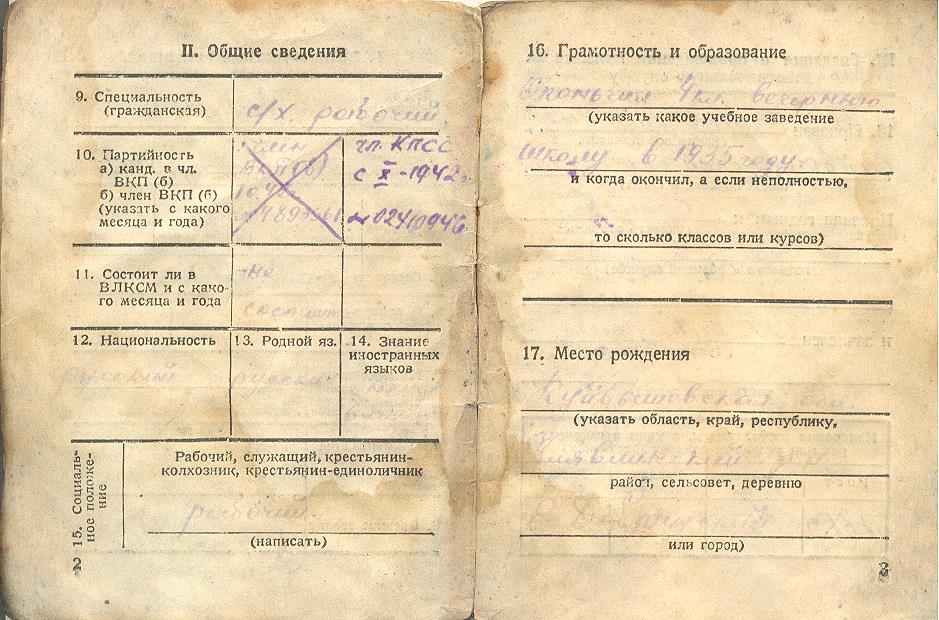 II. Общие сведения
9. Специальность
(гражданская)
с/х рабочий
10. Партийность
а) канд. в чл.
ВКП (б)
б) член ВКП (б)
(указать с какого
месяца и года)
член
ВКП(б)
чл. КПСС
с X-1942г.
№02410946
11. Состоит ли в
ВЛКСМ и с како-
го месяца и года
не
состоит
12. Национальность
русский
13. Родной яз.
русский
14. Знание
иностранных
языков
15. Социаль-
ное положе-
ние
Рабочий, служащий, крестьянин-
колхозник, крестьянин-единоличник
рабочий
(написать)
2
16. Грамотность и образование
Окончил 4 кл. вечернюю
(указать какое учебное заведение
школу в 1935 году.
и когда окончил, а если неполностью,
то сколько классов или курсов)
17. Место рождения
Куйбышевская обл
(указать область, край, республику,
Клявлинский р-н
район, сельсовет, деревню
или город)
3